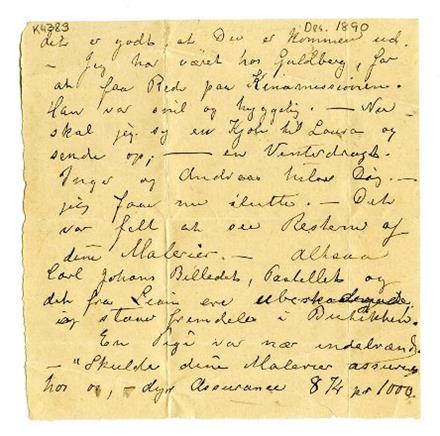 K4383
Des. 1890
det er godt at Du er kommen ud.
– Jeg har været hos Guldberg, for
at faa Rede paa Kinamissionen.
Han var snil og hyggelig. – Nu
skal jeg sy en Kjole til Laura og
sende op; – en Vinterdragt.
Inger og Andreas hilse Dig. –
jeg faar nu slutte. – Det
var fælt at see Resterne af
dine Malerier. – altsaa
Carl Johans Billedet, Pastellet og
det fra are ubeskadigede,
og staar fremdeles i Butikken.
En Pige var nær indebrændt.
– "Skulde dine Malerier assureres
hos os, – dyr Assurance 874 pr 1000.